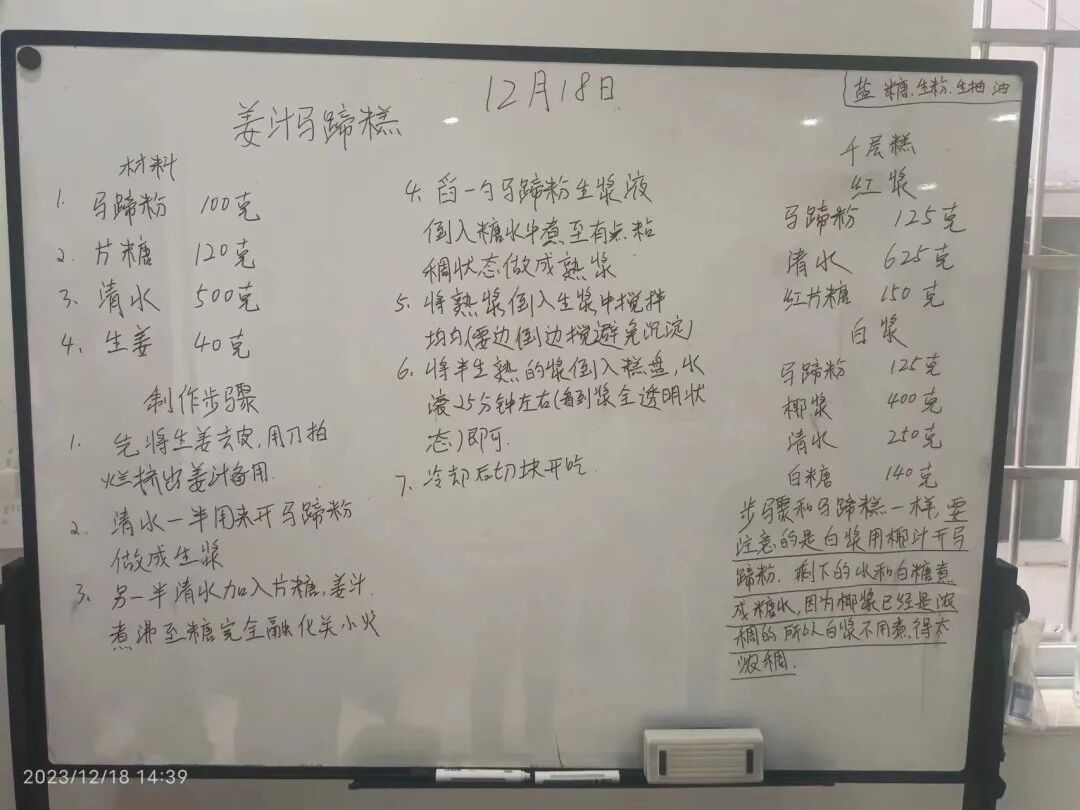 12月18日
盐 糖.生粉.生抽 油
姜汁马蹄糕
材料
1. 马蹄粉 100克
2. 片糖 120克
3. 清水 500克
4. 生姜 40克
制作步骤
1. 先将生姜去皮,用刀拍
烂挤出姜汁备用.
2. 清水一半用来开马蹄粉
做成生浆
3. 另一半清水加入片糖.姜汁.
煮沸至糖完全融化关小火
4. 舀一勺马蹄粉生浆液
倒入糖水中煮至有点粘
稠状态做成熟浆
5. 将熟浆倒入生浆中搅拌
均匀(要边倒边搅避免沉淀)
6. 将半生熟的浆倒入糕盘,水
滚25分钟左右(看到浆全透明状
态)即可.
7. 冷却后切块开吃.
千层糕
红浆
马蹄粉 125克
清水 625克
红片糖 150克
白浆
马蹄粉 125克
椰浆 400克
清水 250克
白糖 140克
步骤和马蹄糕一样,要
注意的是白浆用椰汁开马
蹄粉.剩下的水和白糖煮
成糖水,因为椰浆已经是浓
稠的.所以白浆不用煮得太
浓稠.
2023/12/18 14:39